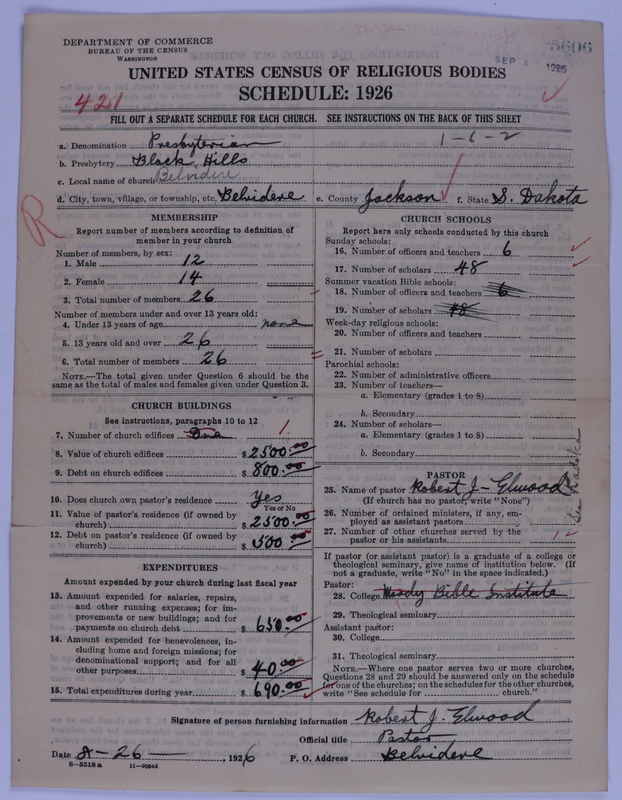 DEPARTMENT OF COMMERCE
BUREAU OF THE CENSUS
WASHINGTON
5606
SEP 4 1926
UNITED STATES CENSUS OF RELIGIOUS BODIES
SCHEDULE: 1926
421
FILL OUT A SEPARATE SCHEDULE FOR EACH CHURCH. SEE INSTRUCTIONS ON THE BACK OF THIS SHEET
a. Denomination Presbyterian 1-6-2
b. Presbytery Black Hills
c. Local name of church Belvidere
d. City, town, village, or township, etc. Belvidere e. County Jackson f. State S. Dakota
R
MEMBERSHIP
Report number of members according to definition of
member in your church
Number of members, by sex:
1. Male 12
2. Female 14
3. Total number of members 26
Number of members under and over 13 years old:
4. Under 13 years of age none
5. 13 years old and over 26
6. Total number of members 26
NOTE.—The total given under Question 6 should be the
same as the total of males and females given under Question 3.
CHURCH BUILDINGS
See instructions, paragraphs 10 to 12
7. Number of church edifices One 1
8. Value of church edifices $2500.00
9. Debt on church edifices $800.00
10. Does church own pastor's residence Yes
Yes or No
11. Value of pastor's residence (if owned by
church) $2500.00
12. Debt on pastor's residence (if owned by
church) $500.00
EXPENDITURES
Amount expended by your church during last fiscal year
13. Amount expended for salaries, repairs,
and other running expenses; for im-
provements or new buildings; and for
payments on church debt $650.00
14. Amount expended for benevolences, in-
cluding home and foreign missions; for
denominational support; and for all
other purposes $40.00
15. Total expenditures during year $690.00
CHURCH SCHOOLS
Report here only schools conducted by this church
Sunday schools:
16. Number of officers and teachers 6
17. Number of scholars 48
Summer vacation Bible schools:
18. Number of officers and teachers 6
19. Number of scholars 48
Week-day religious schools:
20. Number of officers and teachers
21. Number of scholars
Parochial schools:
22. Number of administrative officers
23. Number of teachers—
a. Elementary (grades 1 to 8)
b. Secondary
24. Number of scholars—
a. Elementary (grades 1 to 8)
b. Secondary
PASTOR
25. Name of pastor Robert J. Elwood
(If church has no pastor, write "None")
26. Number of ordained ministers, if any, em-
ployed as assistant pastors
27. Number of other churches served by the
pastor or his assistants 1
See
If pastor (or assistant pastor) is a graduate of a college or
theological seminary, give name of institution below. (If
not a graduate, write "No" in the space indicated.)
Pastor:
28. College Moody Bible Institute
29. Theological seminary
Assistant pastor:
30. College
31. Theological seminary
NOTE.—Where one pastor serves two or more churches,
Questions 28 and 29 should be answered only on the schedule
for one of the churches; on the schedules for the other churches,
write "See schedule for church."
Signature of person furnishing information Robert J. Elwood
Official title Pastor
Date 8-26-, 1926 P. O. Address Belvidere
8—5518 a 11—9054d